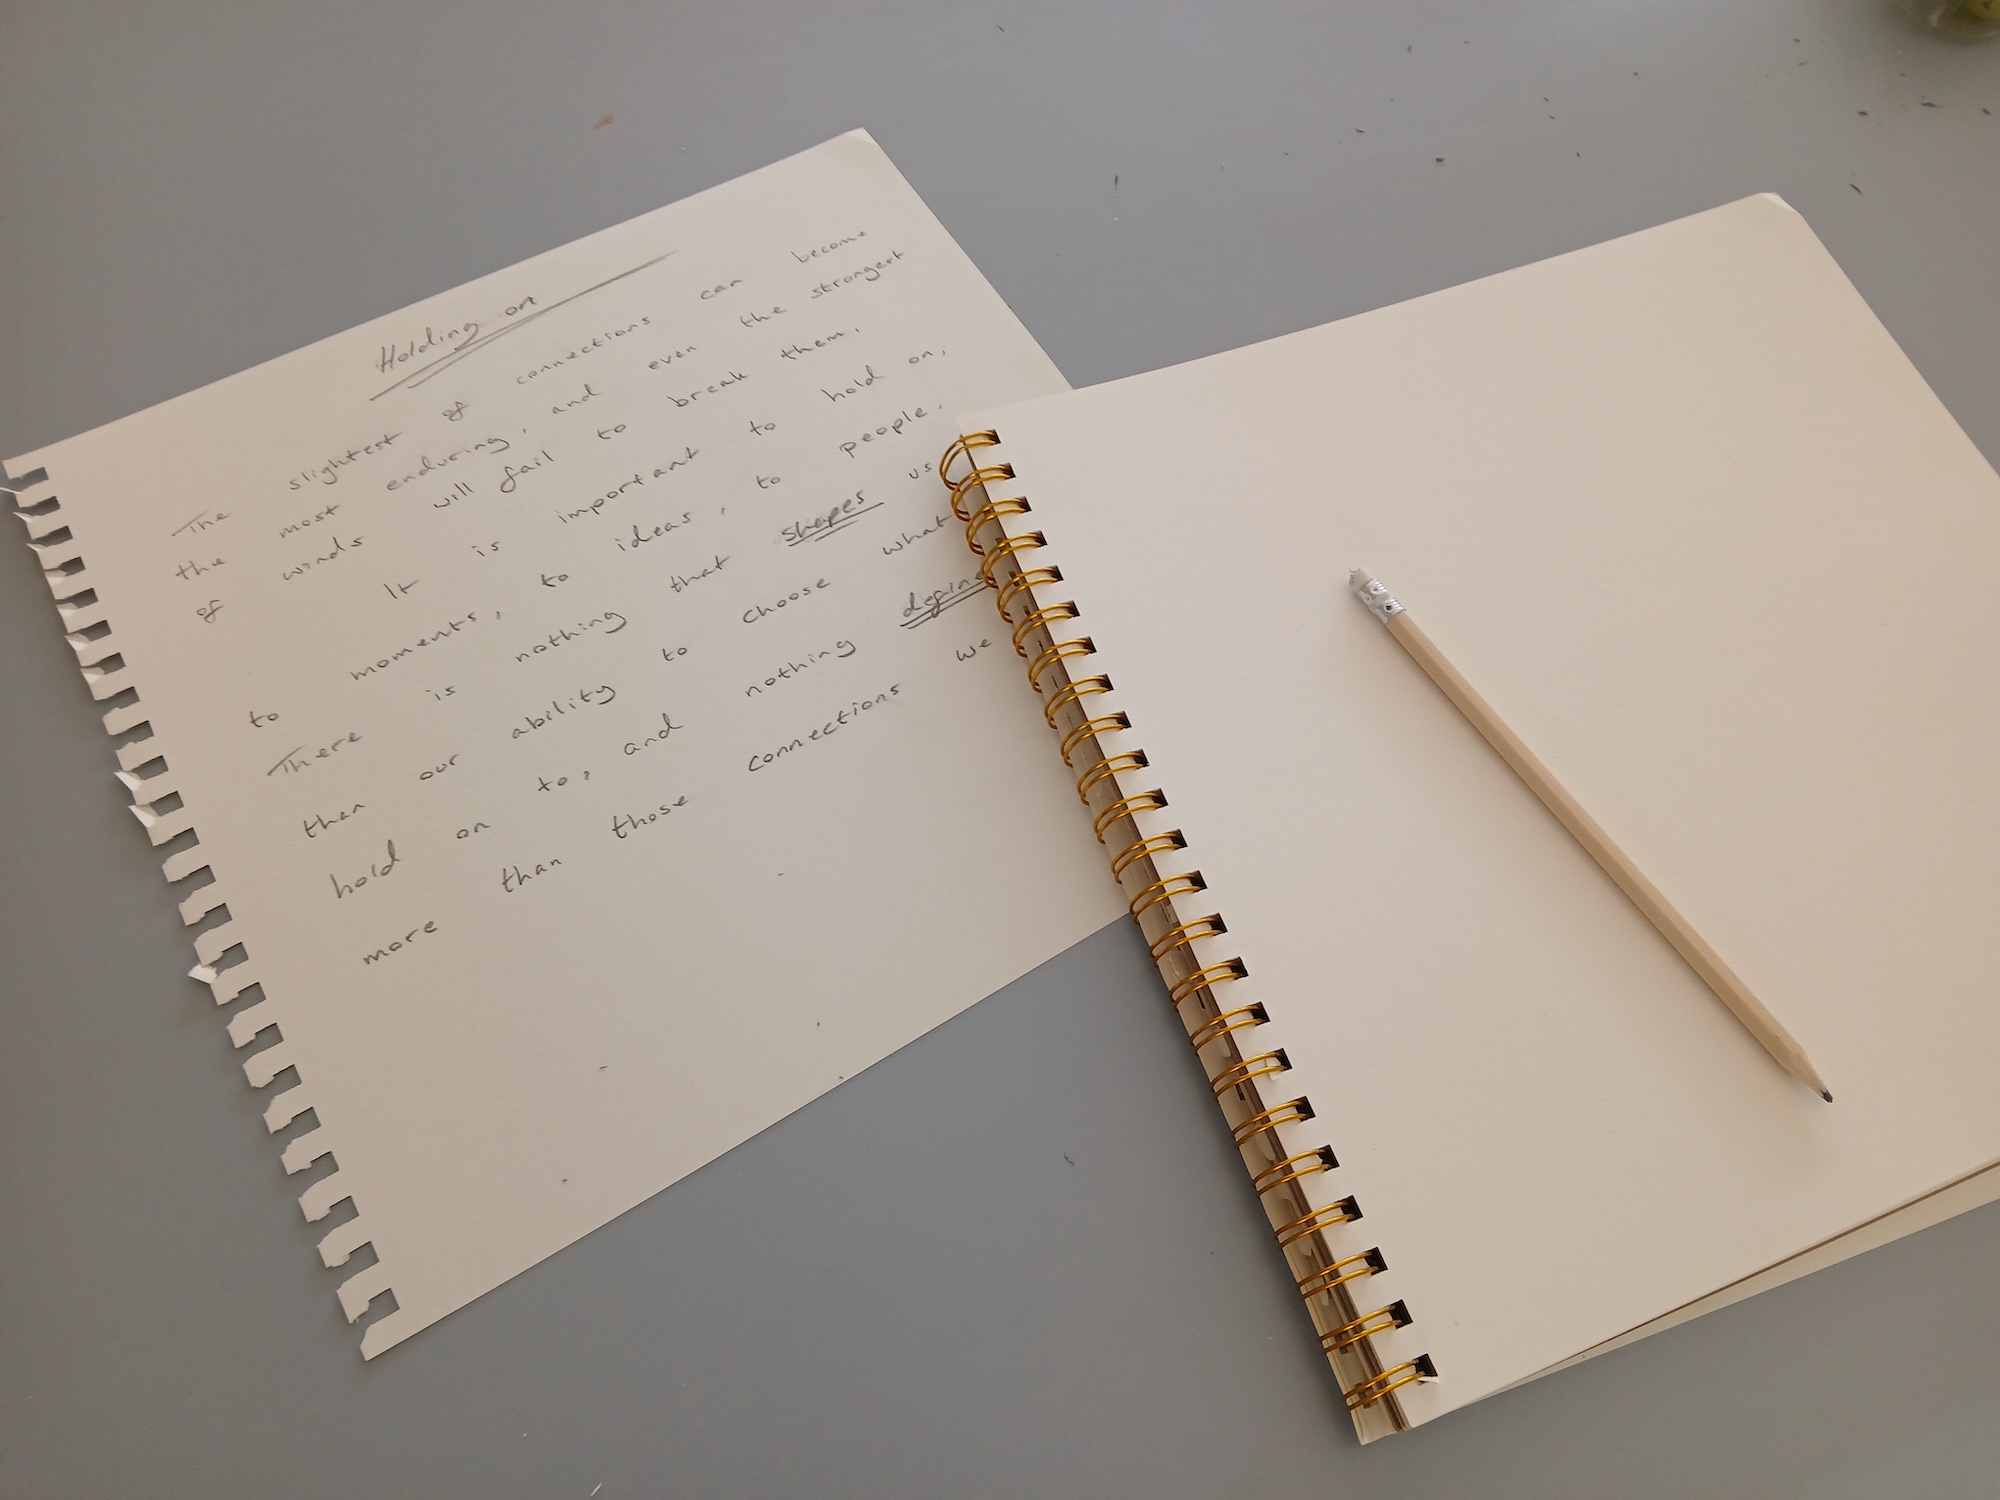 Holding on
The slightest of connections can become
the most enduring, and even the strongest
of winds will fail to break them.
It is important to hold on;
to moments, to ideas, to people.
There is nothing that shapes us
than our ability to choose what
hold on to, and nothing define
more than those connections we